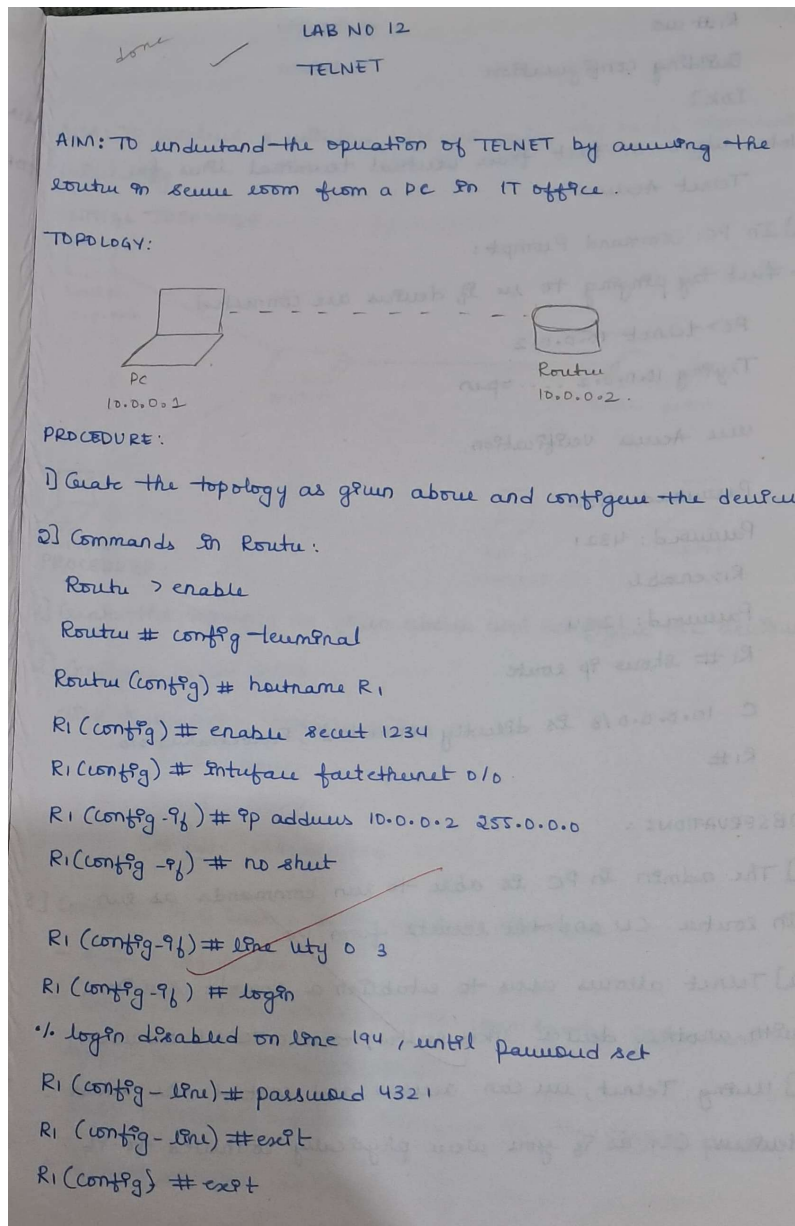 LAB NO 12
done
TELNET
AIM: TO understand the operation of TELNET by accessing the
router in server room from a PC in IT office.
TOPOLOGY:
PC
10.0.0.1
Router
10.0.0.2.
PROCEDURE:
1] Create the topology as given above and configure the devices
2] Commands in Router:
Router > enable
Router # config terminal
Router (config) # hostname R1
R1 (config) # enable secret 1234
R1 (config) # interface fastethernet 0/0
R1 (config-if) # ip address 10.0.0.2 255.0.0.0
R1 (config-if) # no shut
R1 (config-if) # line vty 0 3
R1 (config-if) # login
% login disabled on line 194, until password set
R1 (config-line) # password 4321
R1 (config-line) # exit
R1 (config) # exit